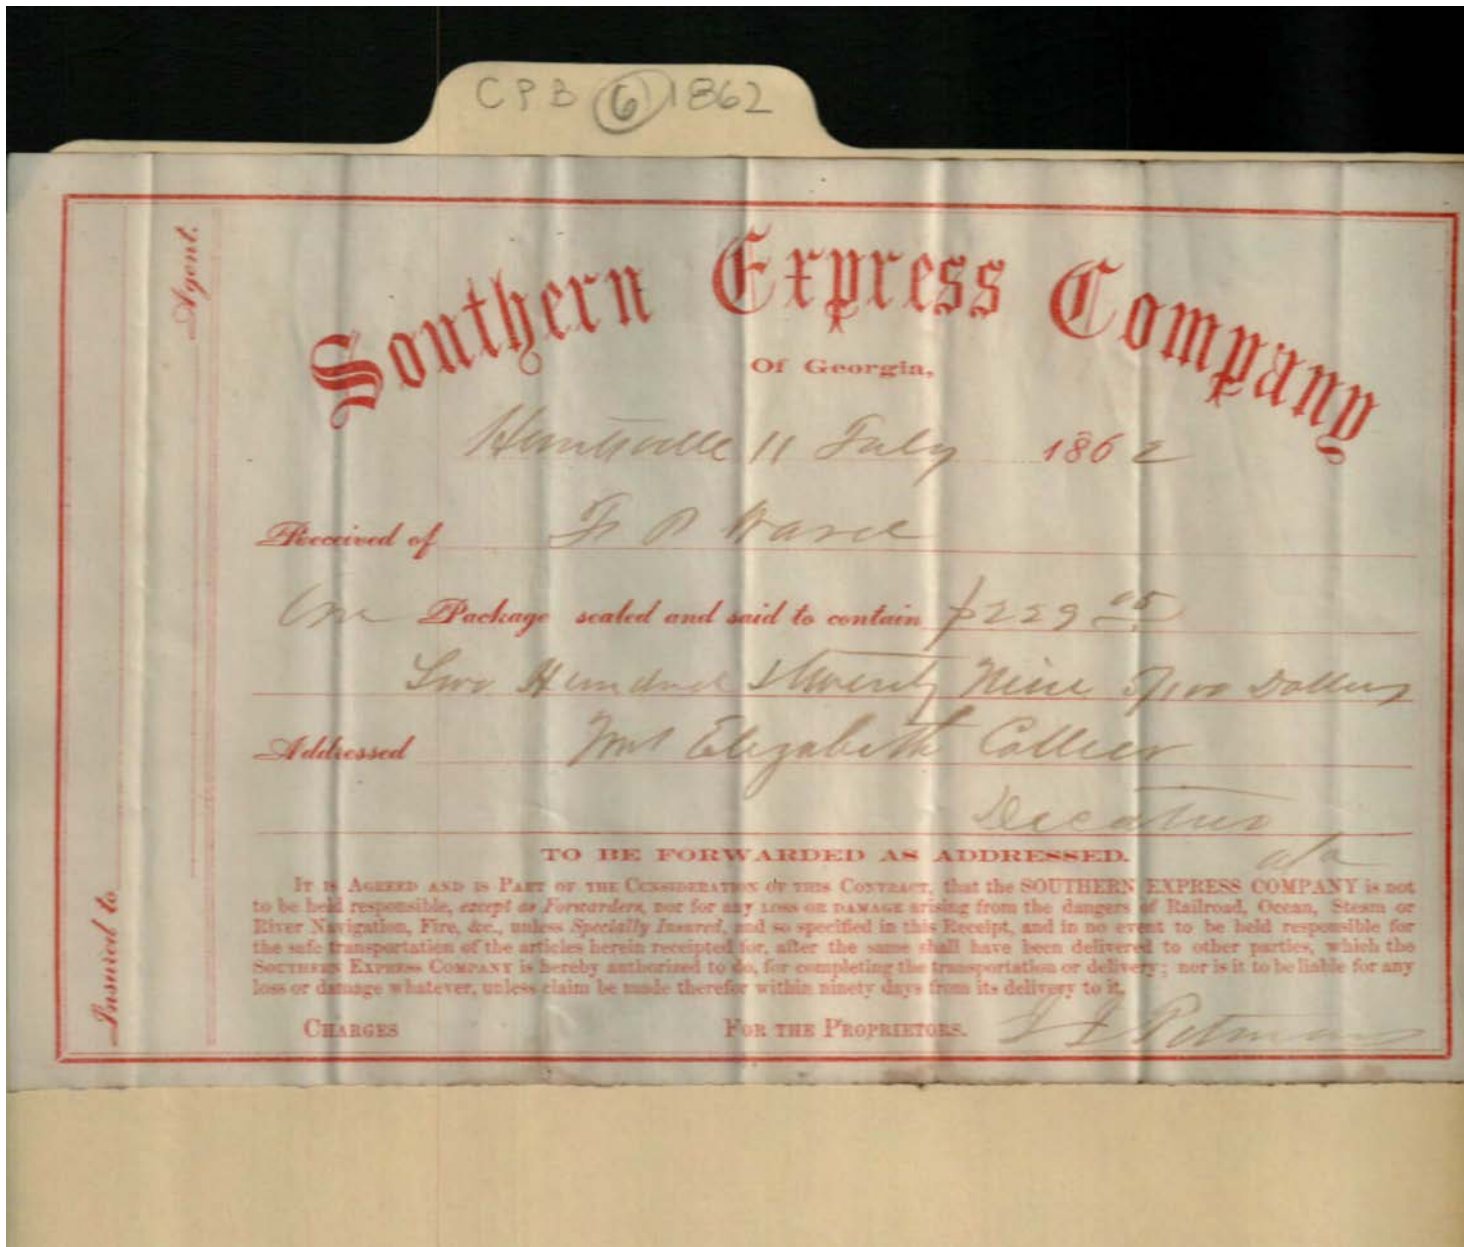 CPB 6 1862
Agent.
Insured to
Southern Express Company
Of Georgia,
Huntsville 11 July 1862
Received of Ward
One Package sealed and said to contain $229 05
Two Hundred twenty Nine 5/100 Dollars
Addressed Elizabeth Collier
Decatur
ala
TO BE FORWARDED AS ADDRESSED.
IT IS AGREED AND IS PART OF THE CONSIDERATION OF THIS CONTRACT, that the SOUTHERN EXPRESS COMPANY is not
to be held responsible, except as Forwarders, nor for any LOSS OR DAMAGE arising from the dangers of Railroad, Ocean, Steam or
River Navigation, Fire, &c., unless Specially Insured, and so specified in this Receipt, and in no event to be held responsible for
the safe transportation of the articles herein receipted for, after the same shall have been delivered to other parties, which the
SOUTHERN EXPRESS COMPANY is hereby authorized to do, for completing the transportation or delivery; nor is it to be liable for any
loss or damage whatever, unless claim be made therefor within ninety days from its delivery to it.
CHARGES FOR THE PROPRIETORS.